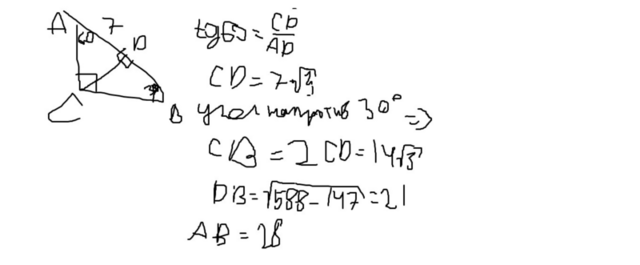 A 7
60 D
30
C B
tg60 = CD/AD
CD = 7√3
угол напротив 30° =>
CB = 2CD = 14√3
DB = √588 - 147 = 21
AB = 28